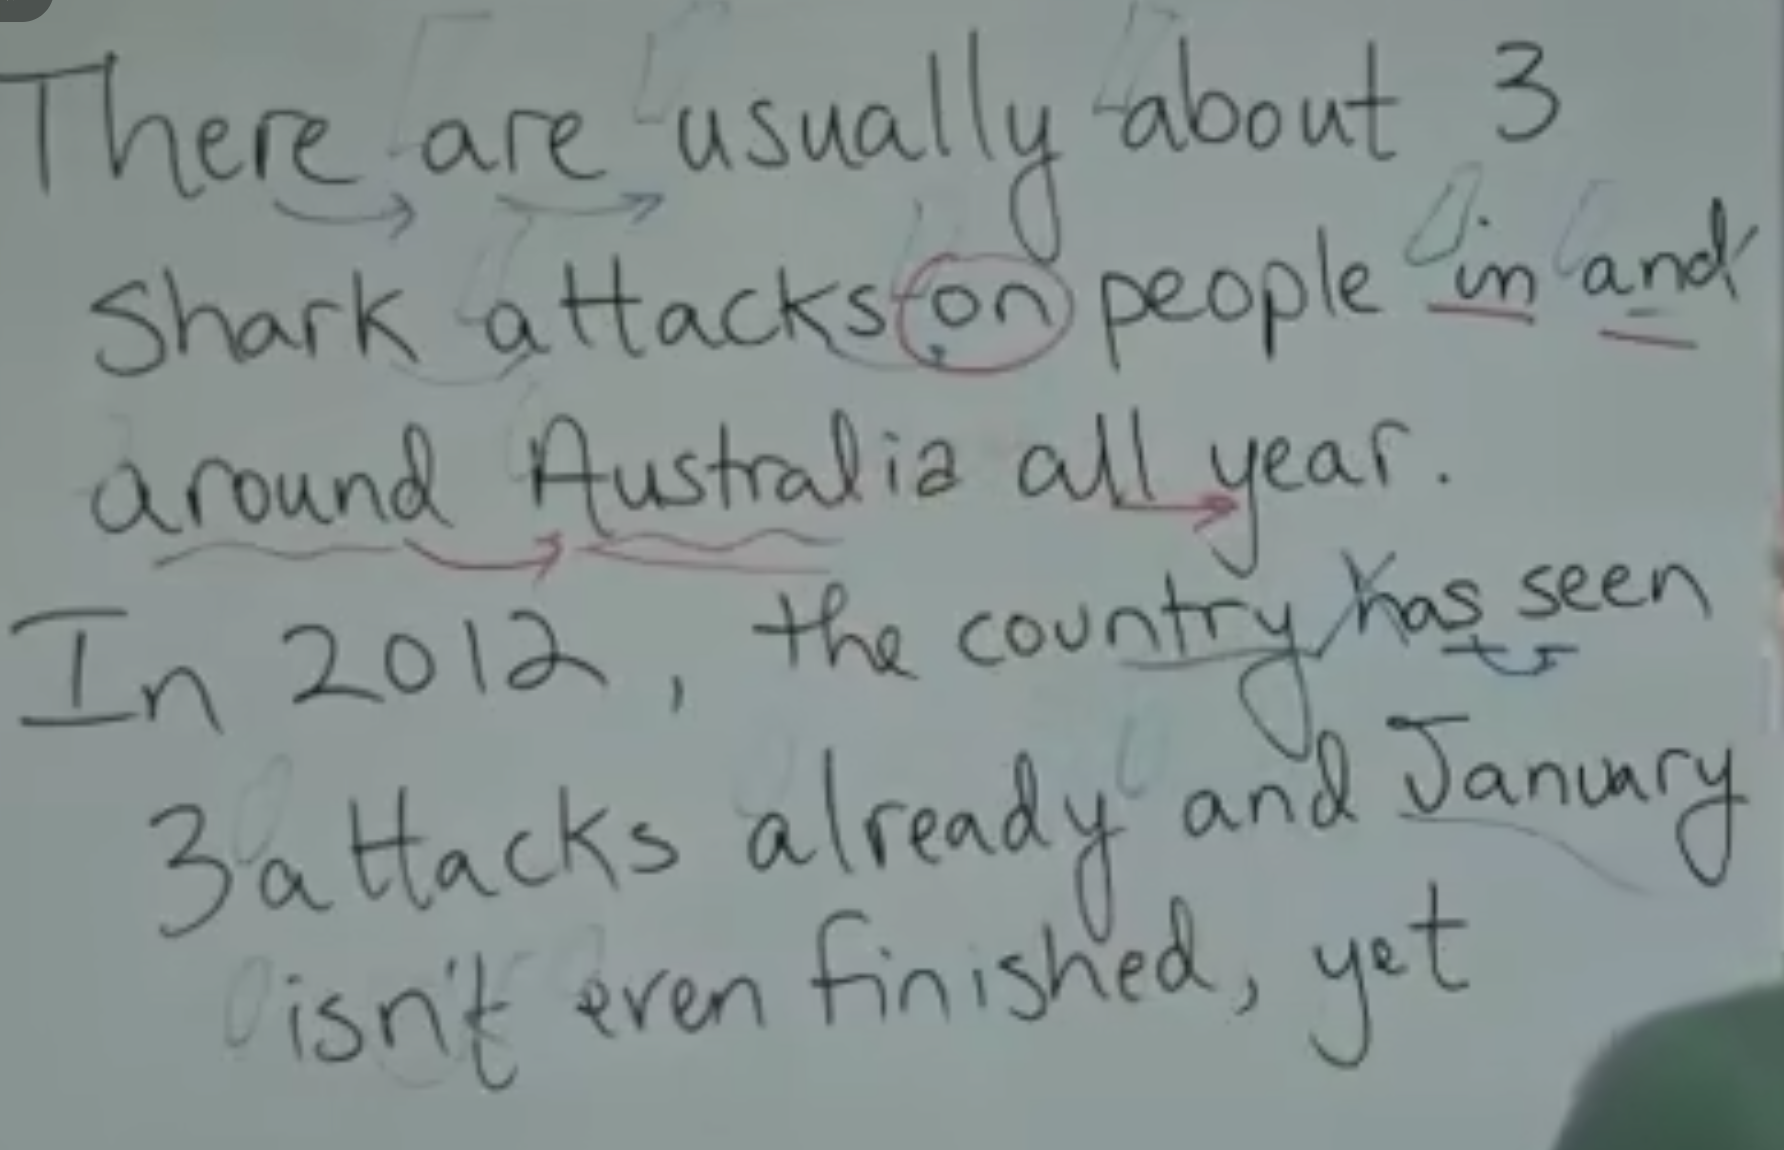 There are usually about 3
Shark attacks on people in and
around Australia all year.
In 2012, the country has seen
3 attacks already and January
isn't even finished, yet